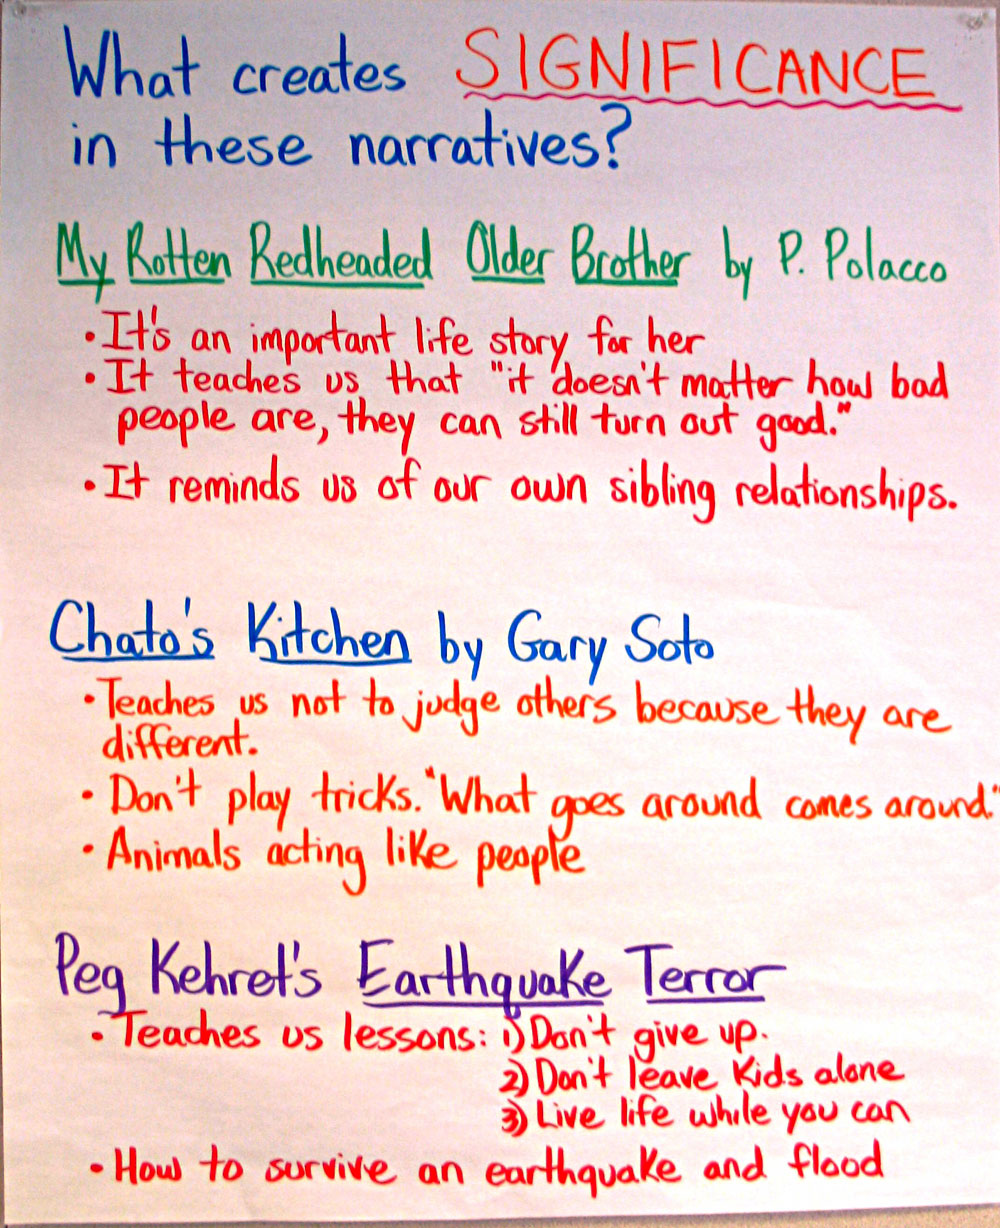 What creates SIGNIFICANCE
in these narratives?
My Rotten Redheaded Older Brother by P. Polacco
• It's an important life story for her
• It teaches us that "it doesn't matter how bad
people are, they can still turn out good."
• It reminds us of our own sibling relationships.
Chato's Kitchen by Gary Soto
• Teaches us not to judge others because they are
different.
• Don't play tricks. "What goes around comes around."
• Animals acting like people
Peg Kehret's Earthquake Terror
• Teaches us lessons: 1) Don't give up.
2) Don't leave kids alone
3) Live life while you can
• How to survive an earthquake and flood